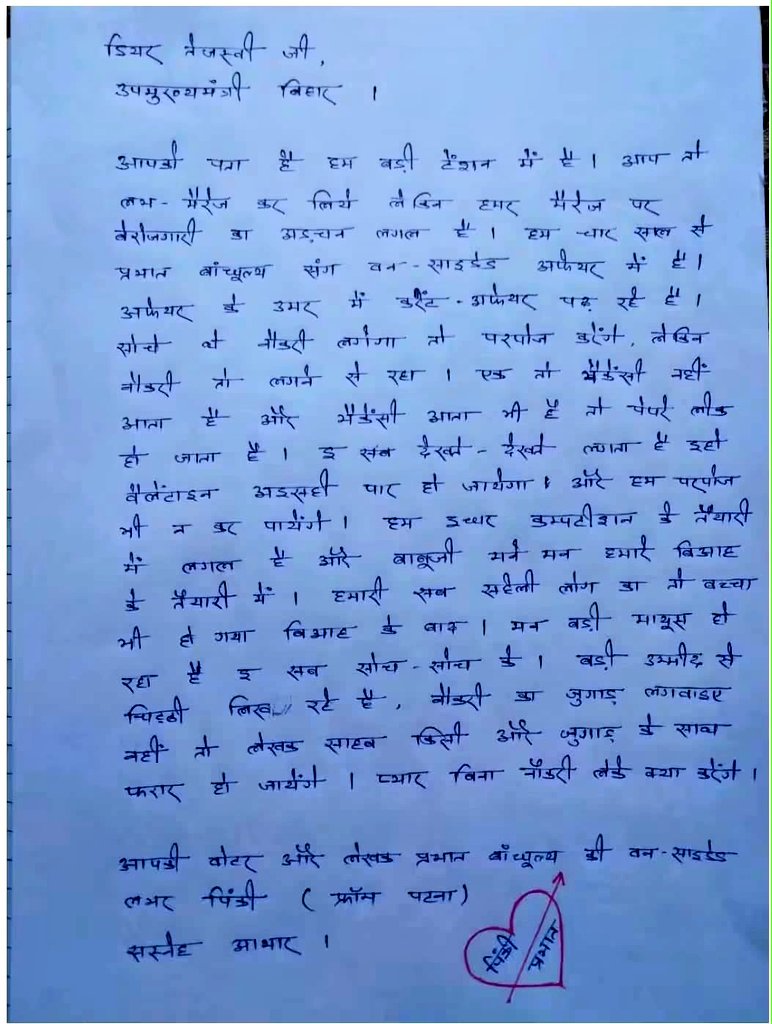 डियर तेजस्वी जी,
उपमुख्यमंत्री बिहार ।
आपको पता है हम बड़ी टेंशन में है । आप तो
लभ - मैरेज कर लिये लेकिन हमर मैरेज पर
बेरोजगारी का अड़चन लगल है । हम चार साल से
प्रभात बांधुल्य संग वन - साइडेड अफेयर में है ।
अफेयर के उमर में करेंट - अफेयर पढ़ रहे है ।
सोचे थे नौकरी लगेगा तो परपोज करेंगे, लेकिन
नौकरी तो लगने से रहा । एक तो भैकेंसी नहीं
आता है और भैकेंसी आता भी है तो पेपरे लीक
हो जाता है । इ सब देखते - देखते लगता है इहो
वैलेंटाइन अइसही पार हो जायेगा । और हम परपोज
भी न कर पायेंगे । हम इधर कम्पटीशन के तैयारी
में लगल है और बाबूजी मने मन हमारे बिआह
के तैयारी में । हमारी सब सहेली लोग का तो बच्चा
भी हो गया बिआह के बाद । मन बड़ी मायूस हो
रहा है इ सब सोच - सोच के । बड़ी उम्मीद से
चिट्ठी लिख रहे है, नौकरी का जुगाड़ लगवाइए
नहीं तो लेखक साहब किसी और जुगाड़ के साथ
फरार हो जायेंगे । प्यार बिना नौकरी लेके क्या करेंगे ।
आपकी वोटर और लेखक प्रभात बांधुल्य की वन - साइडेड
लभर पिंकी ( फ्रॉम पटना )
सस्नेह आभार ।
पिंकी प्रभात